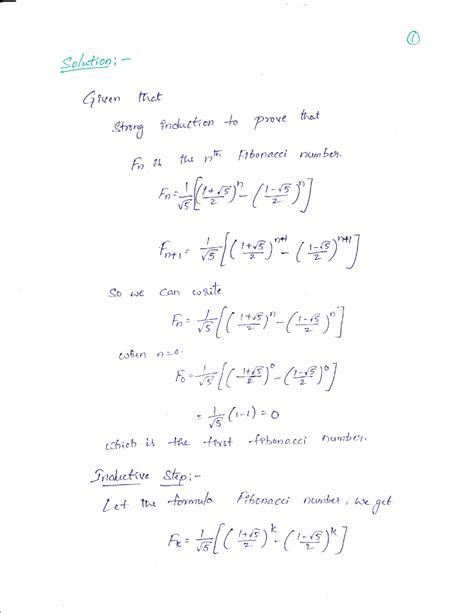 ①
Solution:-
Given that
Strong induction to prove that
Fn is the nth Fibonacci number.
Fn = 1/√5 [((1+√5)/2)^n - ((1-√5)/2)^n]
Fn+1 = 1/√5 [((1+√5)/2)^n+1 - ((1-√5)/2)^n+1]
So we can write
Fn = 1/√5 [((1+√5)/2)^n - ((1-√5)/2)^n]
when n=0.
F0 = 1/√5 [((1+√5)/2)^0 - ((1-√5)/2)^0]
= 1/√5 (1-1) = 0
which is the first fibonacci number.
Inductive Step:-
Let the formula Fibonacci number, we get
Fk = 1/√5 [((1+√5)/2)^k - ((1-√5)/2)^k]